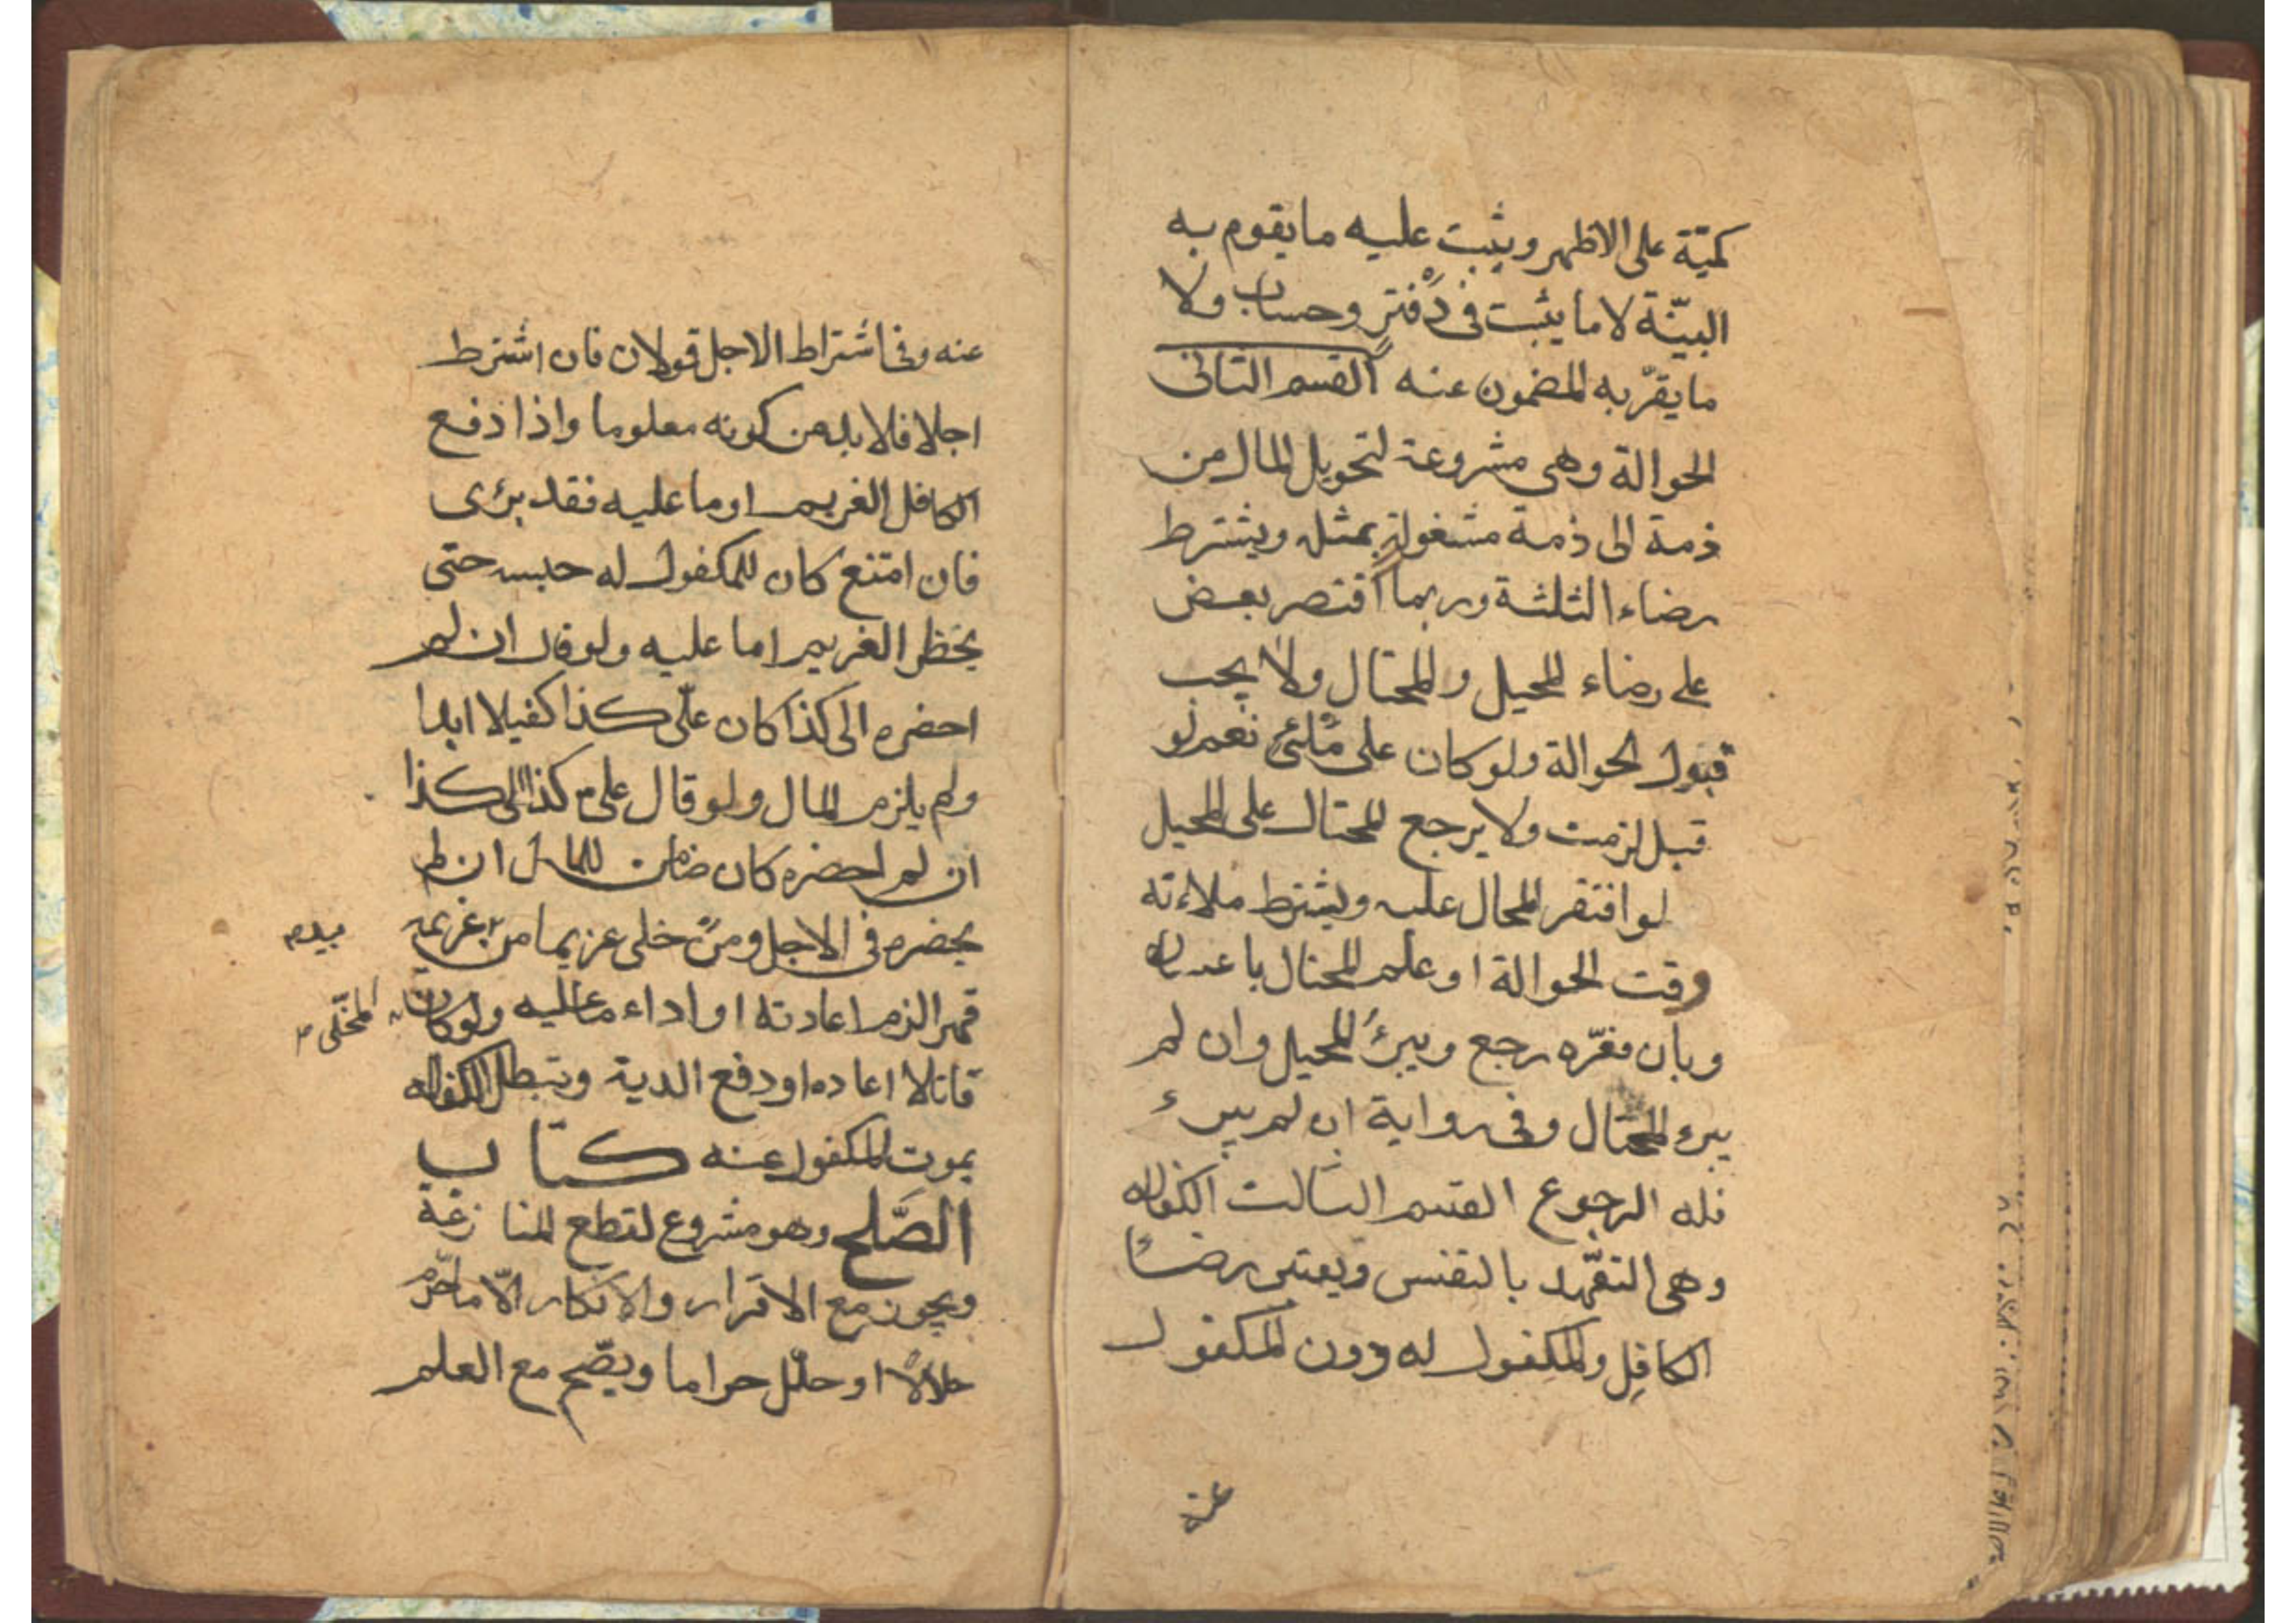 كميّة على الاظهر ويثبت عليه ما يقوم به
البيّنة لا ما يثبت فى دفتر وحساب ولا
ما يقرّ به المضمون عنه القسم الثانى
الحوالة وهى مشروعة لتحويل المال من
ذمة الى ذمة مشغولة بمثله ويشترط
رضاء الثلثة وربما اقتصر بعض
على رضاء المحيل والمحتال ولا يجب
قبول الحوالة ولو كان على ملئ نعم لو
قبل لزمت ولا يرجع المحتال على المحيل
لو افتقر المحال عليه ويشترط ملاءته
وقت الحوالة او علم المحتال باعساره
وبان فقره رجع ويبرئ المحيل وان لم
يبرء المحتال وفى رواية ان لم يبرء
فله الرجوع القسم الثالث الكفالة
وهى التعّهد بالنفس ويعتبر رضاء
الكافل والمكفول له دون المكفول
عنه
عنه وفى اشتراط الاجل قولان فان اشترط
اجلا فلا بد من كونه معلوما واذا دفع
الكافل الغريم او ما عليه فقد برئ
فان امتنع كان للمكفول له حبسه حتى
يحظر الغريم او ما عليه ولو قال ان لم
احضره الى كذا كان علىّ كذا كفيلا ابدا
ولم يلزم المال ولو قال علىّ كذا الى كذا
ان لم احضره كان ضامن للمال ان لم
يحضره فى الاجل ومن خلى غريما من غريمه
بيده
قهرا لزم اعادته او اداء ما عليه ولو كان
المخلّى
قاتلا اعاده او دفع الدية وتبطل الكفالة
بموت المكفول عنه كتاب
الصّلح وهو مشروع لقطع المنازعة
ويجوز مع الاقرار والانكار الّا ما حرّم
حلالاً او حلّل حراما ويصّح مع العلم